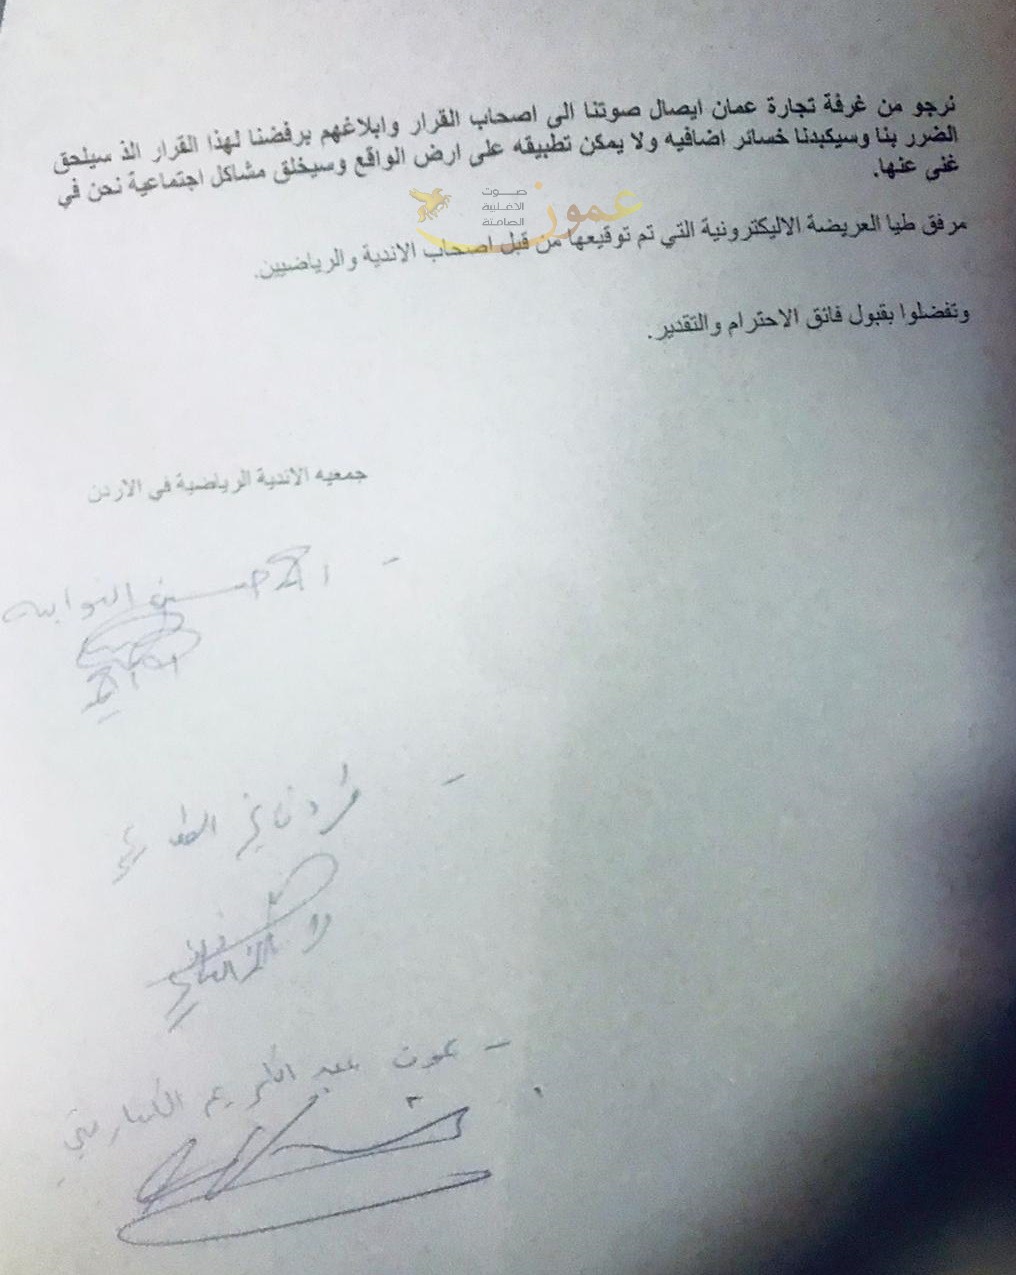 نرجو من غرفة تجارة عمان ايصال صوتنا الى اصحاب القرار وابلاغهم برفضنا لهذا القرار الذ سيلحق
الضرر بنا وسيكبدنا خسائر اضافيه ولا يمكن تطبيقه على ارض الواقع وسيخلق مشاكل اجتماعية نحن في
غنى عنها.
عمون
صوت
الاغلبية
الصامتة
مرفق طيا العريضة الاليكترونية التي تم توقيعها من قبل اصحاب الاندية والرياضيين.
وتفضلوا بقبول فائق الاحترام والتقدير.
جمعيه الاندية الرياضية في الاردن
- حسين
-
- عون عبد الكريم الكباريتي